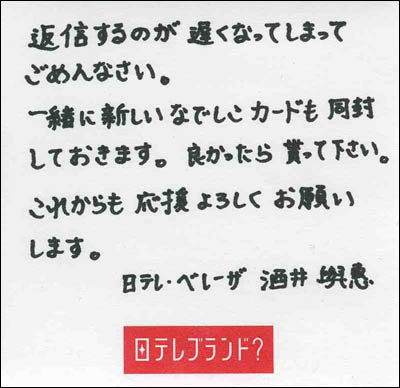 返信するのが 遅くなってしまって
ごめんなさい。
一緒に新しい なでしこ カードも 同封
しておきます。 良かったら 貰って下さい。
これからも 応援 よろしく お願い
します。
日テレ・ベレーザ 酒井 與惠
日テレブランド?